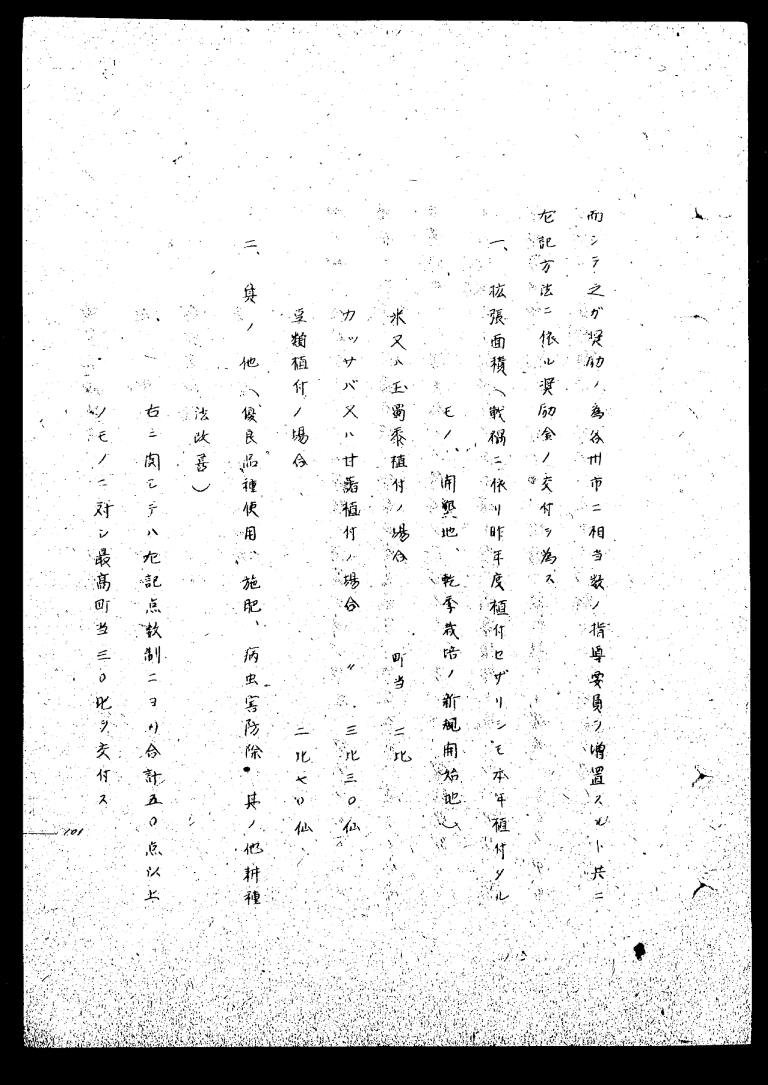 而シテ之ガ奨励ノ為各州市ニ相当数ノ指導委員ヲ増置スルト共ニ
左記方法ニ依ル奨励金ノ交付ヲ為ス
一、拡張面積(戦禍ニ依リ昨年度植付セザリシモ本年植付タル
モノ、開墾地、乾季栽培ノ新規開始地)
米又ハ玉蜀黍植付ノ場合 町当 二比
カッサバ又ハ甘藷植付ノ場合 〃 三比三〇仙
豆類植付ノ場合 二比七〇仙
二、其ノ他(優良品種使用、施肥、病虫害防除、其ノ他耕種
法改善)
右ニ関シテハ左記点数制ニヨリ合計五〇点以上
ノモノニ対シ最高町当三〇比ヲ交付ス
101